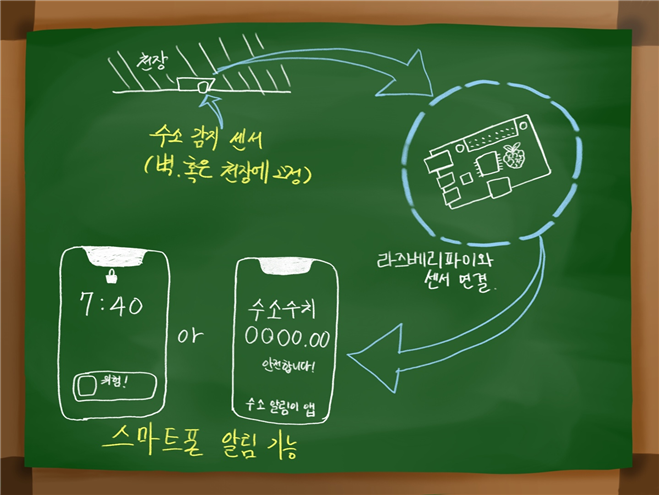 천장
수소 감지 센서
(벽. 혹은 천장에 고정)
라즈베리파이와
센서 연결.
7:40
위험!
or
수소수치
0000.00
안전합니다!
수소 알림이 앱
스마트폰 알림 기능